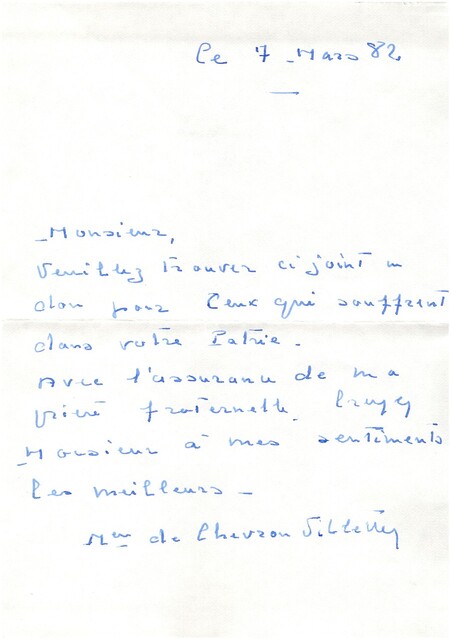 le 7 Mars 82
Monsieur,
Veuillez trouver ci joint un
don pour Ceux qui souffrent
dans votre Patrie.
Avec l'assurance de ma
prière fraternelle. Croyez
Monsieur à mes sentiments
les meilleurs -
de Chevron Villette